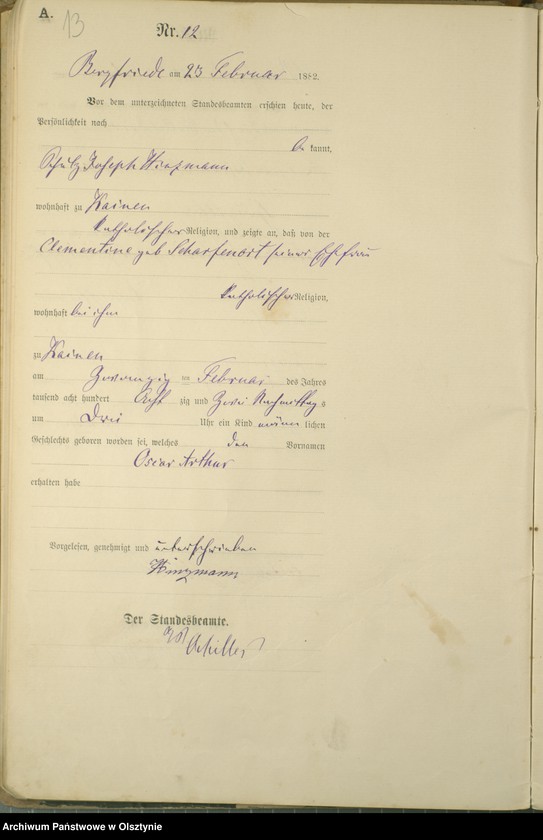 A. 13
Nr. 12
Bergfriede am 23 Februar 1882.
Vor dem unterzeichneten Standesbeamten erschien heute, der
Persönlichkeit nach
be kannt,
Schulz Joseph Hinzmann
wohnhaft zu Kainen
katholischer Religion, und zeigte an, daß von der
Clementine geb Scharfenort seiner Ehefrau
katholischer Religion,
wohnhaft bei ihm
zu Kainen
am Zwanzig ten Februar des Jahres
tausend acht hundert Acht zig und Zwei Nachmittag s
um Drei Uhr ein Kind männ lichen
Geschlechts geboren worden sei, welches den Vornamen
Oscar Arthur
erhalten habe
Vorgelesen, genehmigt und unterschrieben
Hinzmann
Der Standesbeamte.
Achilles
Archiwum Państwowe w Olsztynie